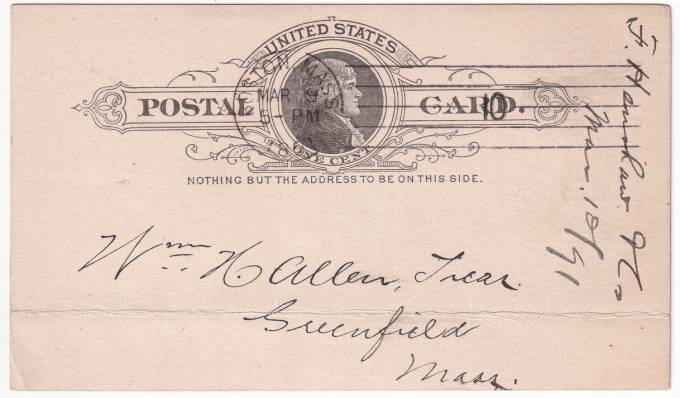 UNITED STATES
POSTAL CARD.
BOSTON MASS
MAR
5-PM
10
ONE CENT
NOTHING BUT THE ADDRESS TO BE ON THIS SIDE.
Wm. H Allen, Treas.
Greenfield
Mass.
Mar. 10/91